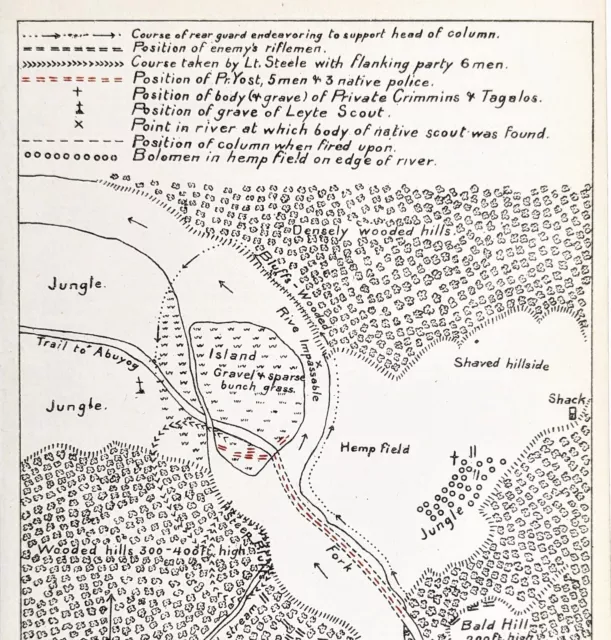 Course of rear guard endeavoring to support head of column.
Position of enemy's riflemen.
Course taken by Lt. Steele with flanking party 6 men.
Position of Pr. Yost, 5 men & 3 native police.
Position of body (& grave) of Private Crimmins & Tagalos.
Position of grave of Leyte Scout.
Point in river at which body of native scout was found.
Position of column when fired upon.
Bolomen in hemp field on edge of river.
Densely wooded hills
Bluffs - Wooded
Jungle.
Island
Gravel & sparse
bunch grass.
River Impassable
Trail to Abuyog
Shaved hillside
Shack
Jungle.
Hemp field
Jungle
Wooded hills 300-400 ft. high
Fork
stream
Bald Hill
200 ft. high